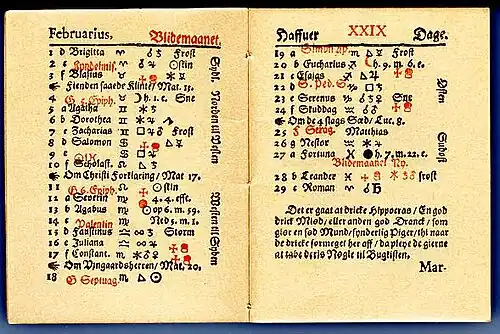 Februarius. Blidemaanet.
1 d Brigitta Frost
2 e Kyndelmis.
3 f Blasius
Fienden saaede Klinte/ Mat. 13.
4 G 5. Epiph. h. 1. e. Sne
5 a Agatha
6 b Dorothea
7 c Zacharias Frost
8 d Salomon
9 e
10 f Scholast.
Om Christi Forklaring/ Mat 17.
11 G 6. Epiph.
12 a Severin 4. 4. eft.
13 b Agabus op 6. m. 59.
14 c Valentin Ned 5. m. 1.
15 d Faustinus Storm
16 e Juliana
17 f Constant.
Om Vingaardsherren/ Mat. 20.
18 G Septuag.
Sydt. Norden til Vesten
Vesten til Synden
Haffuer XXIX Dage.
19 a Simon Ap. Frost
20 b Eucharius h. 9. m. 6. e.
21 c Esaias
22 d S. Ped. S.
23 e Serenus Sne
24 f Skuddag
Om de 4 slags Sæd/ Luc. 8.
25 G Serag. Matthias
26 g Nestor
27 a Fortuna h. 7. m. 22. e.
Blidemaanet Ny.
28 b Leander frost
29 c Roman
Østen
Sydost
Det er gaat at dricke Hippocras/ En god
drick Miød/ eller anden god Dranck/ som
giør en sød Mund/ synderlig Piger/ thi naar
de dricke formeget her aff/ da pleye de gierne
at tabe deris Nøgle til Bugkisten.
Mar-